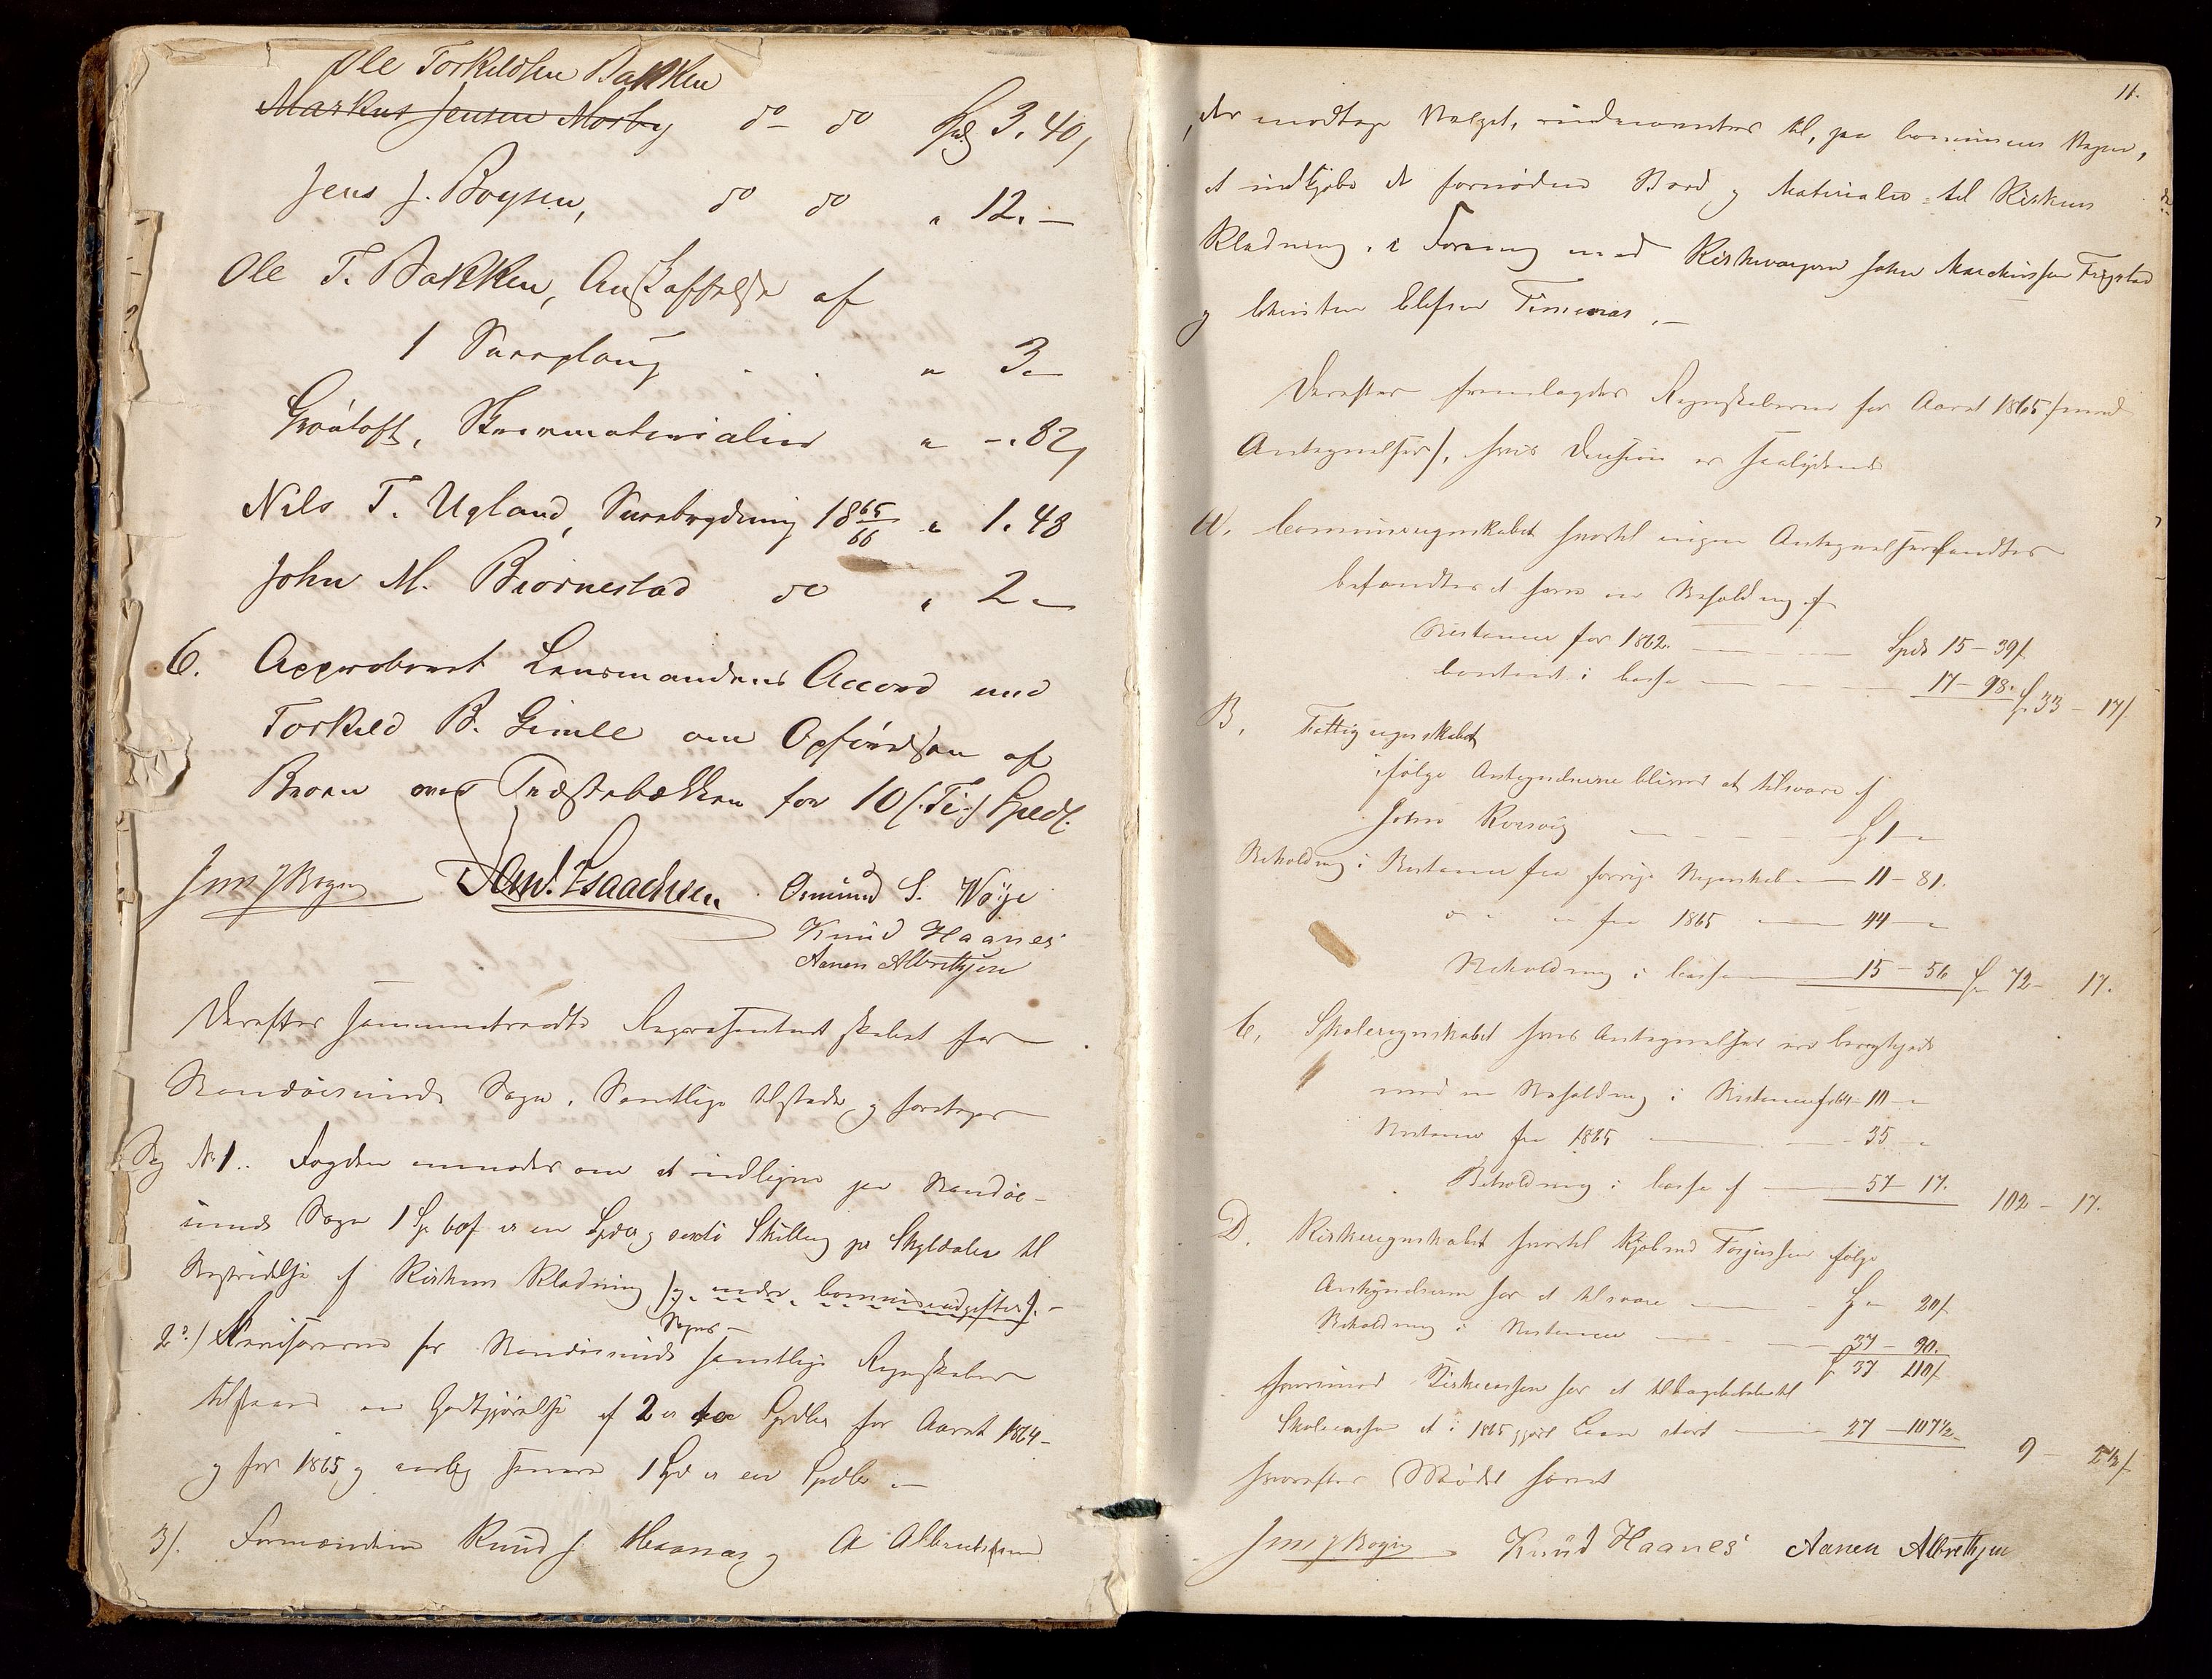 Ole Torkildsen Bakken
Markus Jensen Mosby do do Spd 3. 40,
Jens J. Boysen, do do " 12. —
Ole T. Bakken, Anskaffelse af
1 Sneeploug . . " 3 —
Grøatoft, Skrivmaterialier " -. 82,
Nils T. Ugland, Sneebrydning 1865/66 " 1. 48
John M. Bjørnestad do " 2 —
6. Approberet Lensmandens Accord med
Torkild B. Gimle om Opførelsen af
Broen over Træstebækken for 10 (Ti) Spdl.
Jens J Boysen Dan! Isaachsen Osmund S. Vøje
Knud Haanes
Aanen Albretsjen
Derefter sammentraadte Repræsentantskabet for
Randøesunds Sogn, Samtlige tilstede og foretoges
Sag No 1.. Fogden anmodes om at indligne paa Randøe-
sunds Sogn 1 Sp 60 s er en Spdlr og sexti Skilling pr Skylddaler til
Bestridelse af Kirkens Klædning ) og andre Communeudgifter). —
2o/ Revisorerne for Randøesunds Sogns samtlige Regnskaber
tilstaaes en Godtgjørelse af 2 er to Spdlr for Aaret 1864 —
og for 1865 og aarlig senere 1 Spd er en Spdlr. —
3/. Formændene Knud J. Haanes og A Albretsen
11.
der modtage Valget, til, paa Communens Vegne,
at indkjøbe de fornødne Bord og Materialier til Kirkens
Klædning, i Forening med Kirkeværgerne John Marchussen Frigstad
og Christen Ellefsen Timenes. —
Derefter fremlagdes Regnskaberne for Aaret 1865 (med
Antegnelser), hvis Decision er saalydende
A. Communeregnskabet hvortil ingen Antegnelser fandtes
befandtes at have en Beholdning af
Restancer for 1862. — Spd 15 — 39 s
Contant i Casse — 17 — 98. Sp. 33 — 17 s
B. Fattigregnskabet
ifølge Antegnelserne bliver at tilsvare af
John Korsvig — Sp 1 — "
Beholdning i Restancer fra forrige Regnskab — 11 — 81.
" " fra 1865 — 44 — "
Beholdning i Casse — 15 — 56 Sp 72 — 17.
C, Skoleregnskabet hvis Antegnelser ere
med en Beholdning i Restancer — 10 — "
Restance fra 1865 — 35 — "
Beholdning i Casse af — 57 — 17. 102 — 17.
D. Kirkeregnskabet hvortil Kjøbmd følge
Antegnelserne har at tilsvare — Sp " 20 s
Beholdning i Restancer — 37 — 90.
Sp 37 110 s
hvorimod Kirkecassen har at tilbagebetale til
Skolecassen et i 1865 gjort Laan stort — 27 — 107½
9 — 2½ s
hvorefter Mødet hævet
Jens J Boysen Knud Haanes Aanen Albretsjen